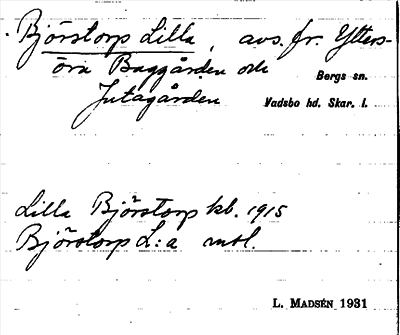 Björstorp Lilla, avs. fr. Ytters-
öra Baggården och Bergs sn.
Jutagården Vadsbo hd. Skar. l.
Lilla Björstorp kb. 1915
Björstorp L:a mtl.
L. MADSÉN 1931